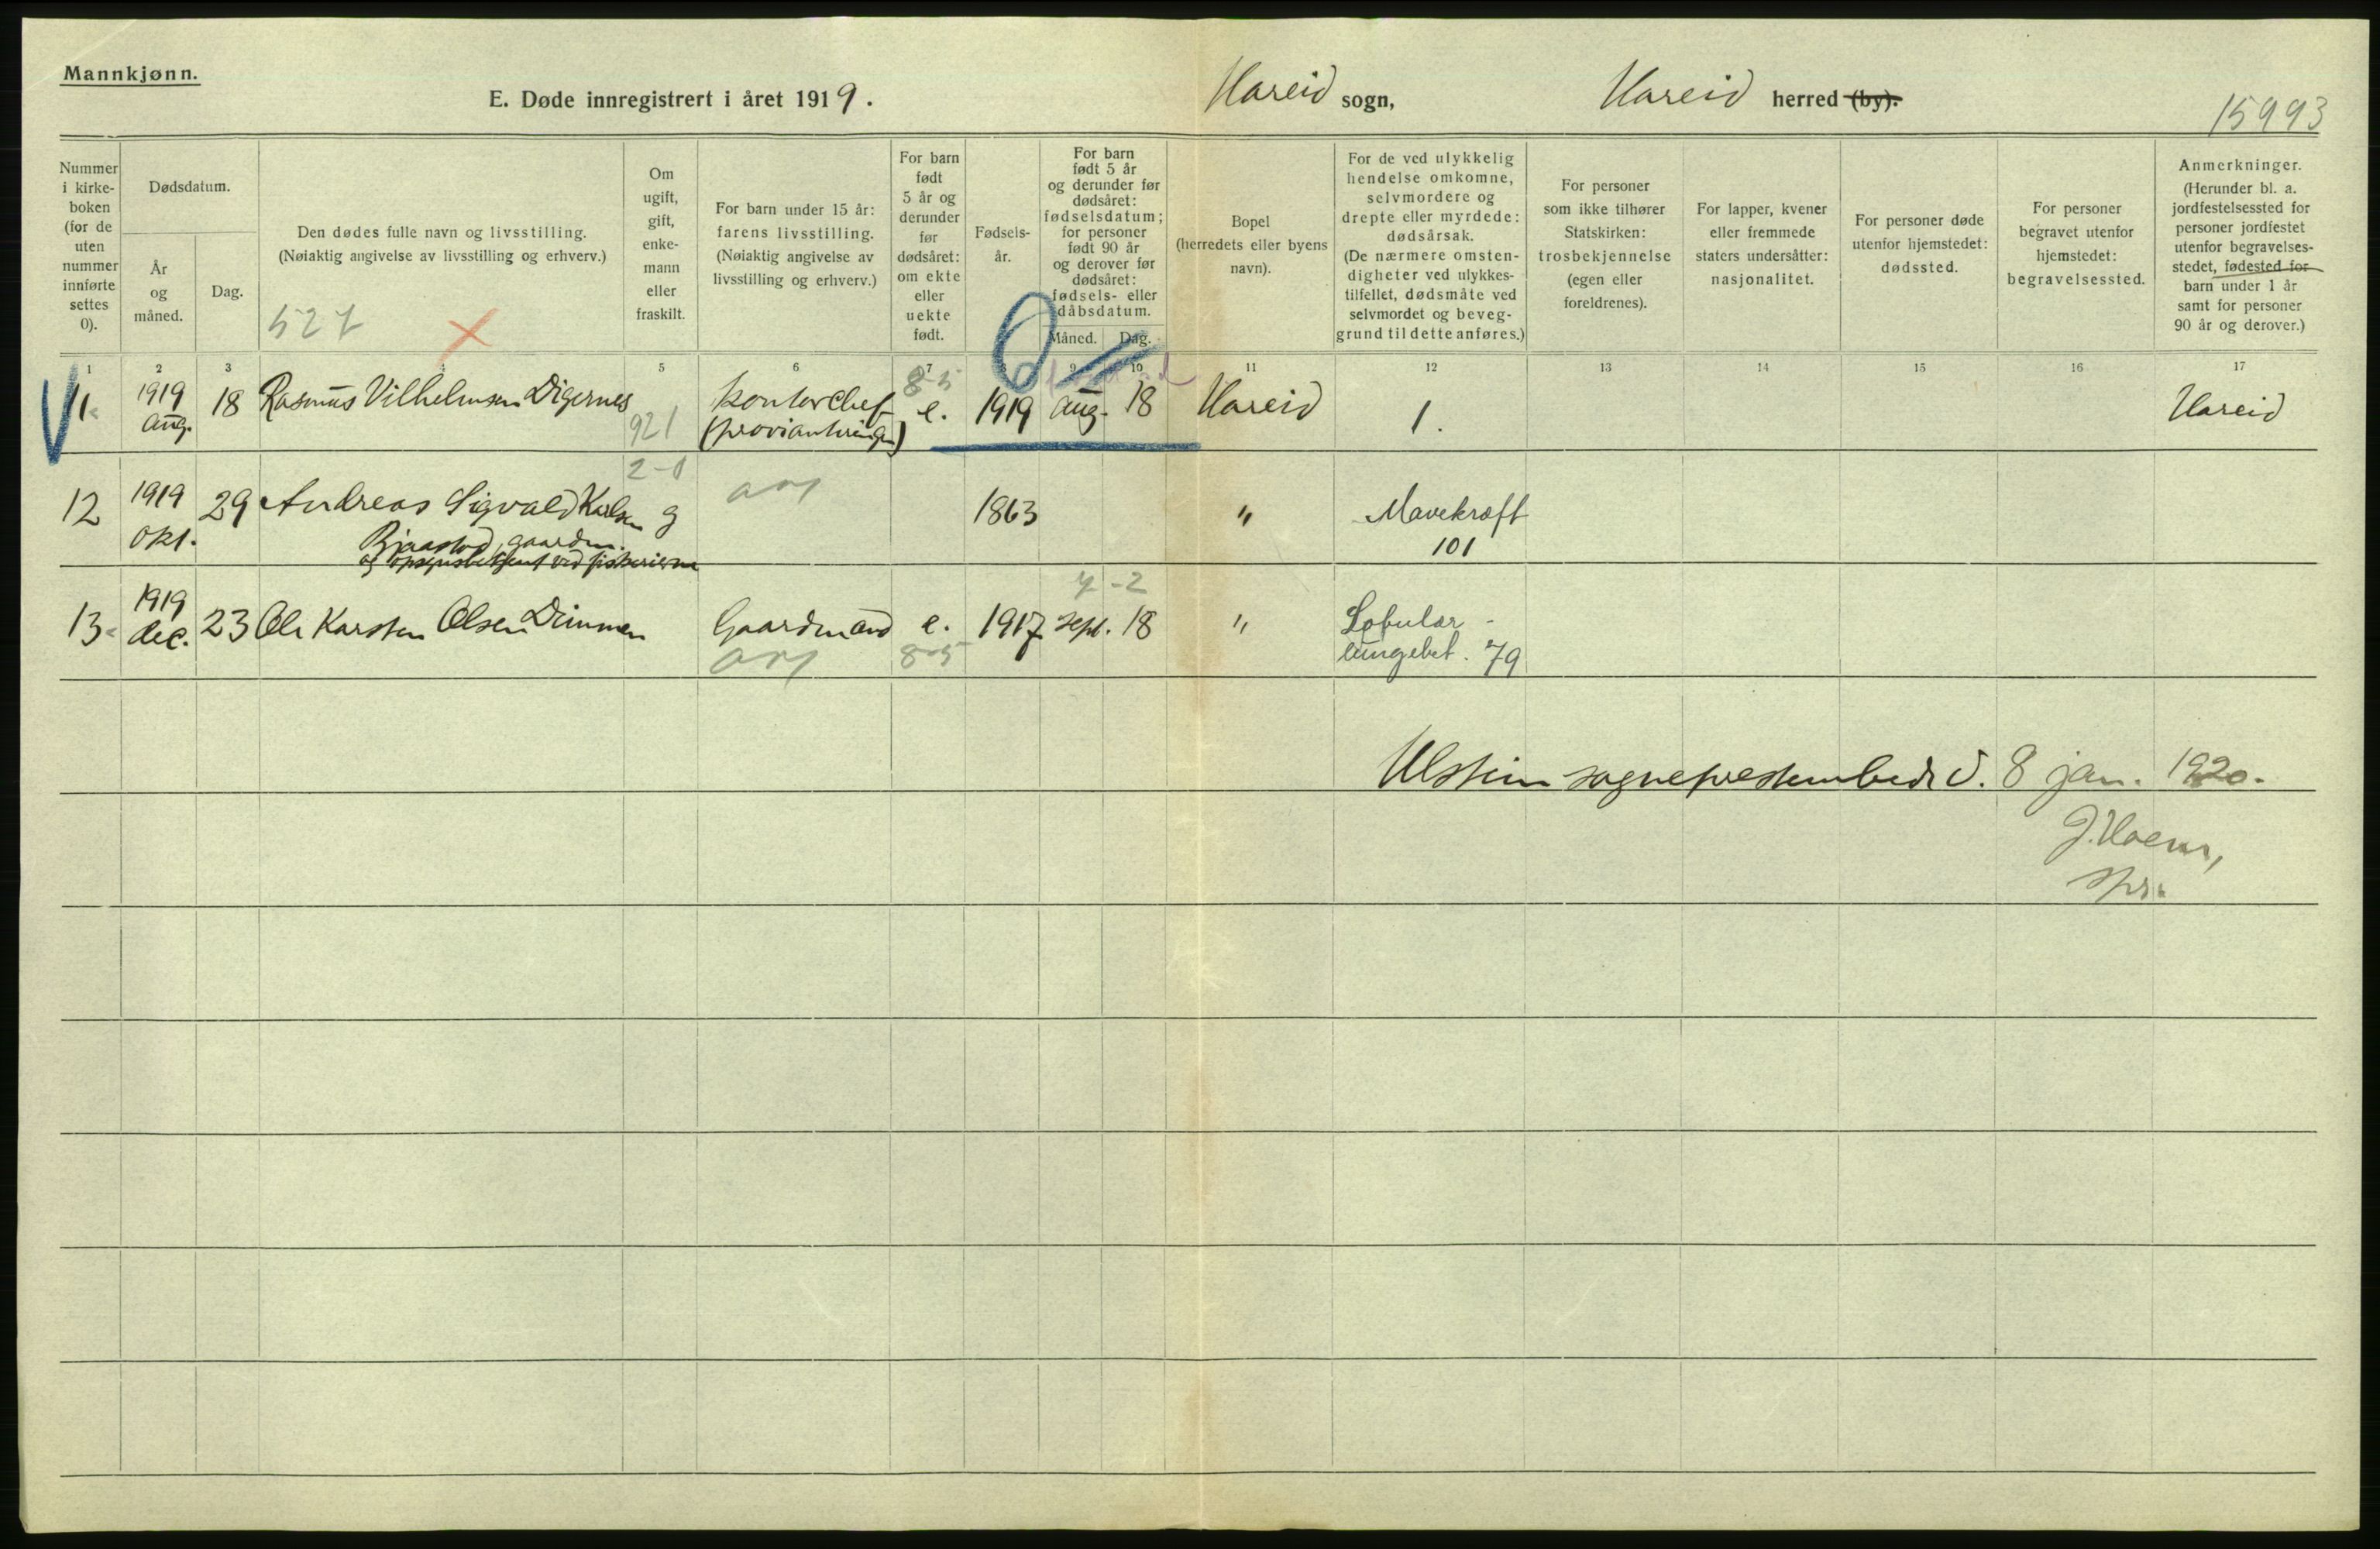 Mannkjønn.
E. Døde innregistrert i året 1919.
Hareid sogn,
Hareid herred (by).
15993
Nummer
i kirke-
boken
(for de
uten
nummer
innførte
settes
0).
Dødsdatum.
År
og
måned.
Dag.
Den dødes fulle navn og livsstilling.
(Nøiaktig angivelse av livsstilling og erhverv.)
527
Om
ugift,
gift,
enke-
mann
eller
fraskilt.
For barn under 15 år:
farens livsstilling.
(Nøiaktig angivelse av
livsstilling og erhverv.)
For barn
født
5 år og
derunder
før
dødsåret:
om ekte
eller
uekte
født.
Fødsels-
år.
For barn
født 5 år
og derunder før
dødsåret:
fødselsdatum;
for personer
født 90 år
og derover før
dødsåret:
fødsels- eller
dåbsdatum.
Måned.
Dag.
Bopel
(herredets eller byens
navn).
For de ved ulykkelig
hendelse omkomne,
selvmordere og
drepte eller myrdede:
dødsårsak.
(De nærmere omsten-
digheter ved ulykkes-
tilfellet, dødsmåte ved
selvmordet og beveg-
grund til dette anføres.)
For personer
som ikke tilhører
Statskirken:
trosbekjennelse
(egen eller
foreldrenes).
For lapper, kvener
eller fremmede
staters undersåtter:
nasjonalitet.
For personer døde
utenfor hjemstedet:
dødssted.
For personer
begravet utenfor
hjemstedet:
begravelsessted.
Anmerkninger.
(Herunder bl. a.
jordfestelsessted for
personer jordfestet
utenfor begravelses-
stedet, fødested for
barn under 1 år
samt for personer
90 år og derover.)
1 2 3 4 5 6 7 8 9 10 11 12 13 14 15 16 17
11 1919 aug. 18 Rasmus Vilhelmsen Digernes 921 kontorchef (provianteringen) 8-5 e. 1919 aug. 18 Hareid 1. Hareid
2-0
12 1919 okt. 29 Andreas Sigvald Karlsen g 1863 " Mavekræft
Bjaastad, gaardm. 101
og opsynsbetjent ved fiskerierne
7-2
13 1919 dec. 23 Ole Karsten Olsen Dimmen Gaardmand e. 1917 sept. 18 " Lobulær
8-5 lungebet. 79
Ulstein sogneprestembede d. 8 jan. 1920.
J. Hoem,
spr.